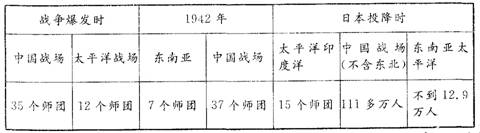 战争爆发时 1942年 日本投降时
中国战场 太平洋战场 东南亚 中国战场 太平洋印度洋 中国战场(不含东北) 东南亚太平洋
35个师团 12个师团 7个师团 37个师团 15个师团 111多万人 不到12.9万人